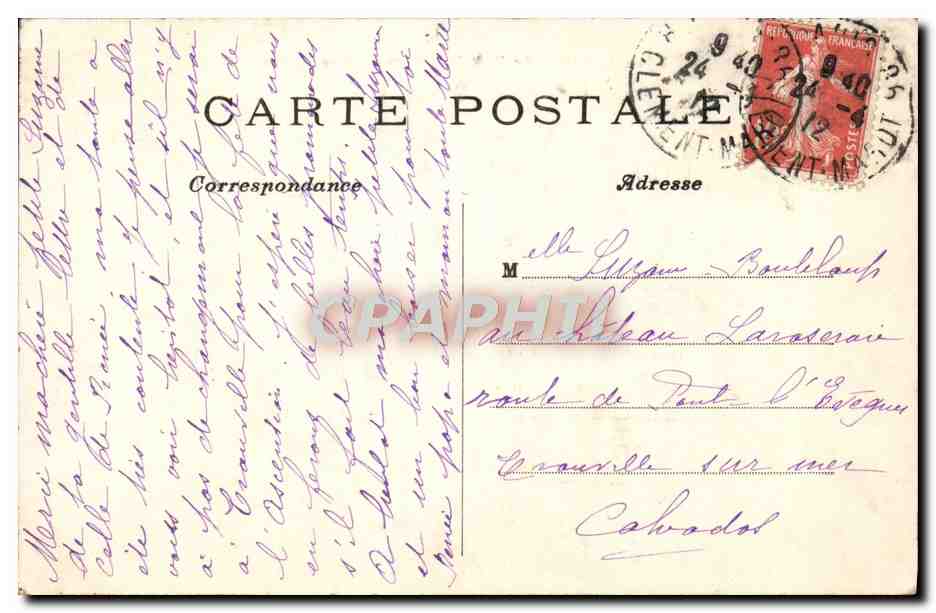 CARTE POSTALE
Correspondance
Adresse
REPUBLIQUE FRANÇAISE
POSTES
9 40
24 - 4
12
CLEMENT-MAROT
CPAPHIL
Merci ma chérie petite Suzanne
de ta gentille lettre et de
celle de Renée ma tante a
été très contente, je pense aller
vous voir bientôt, et s'il n'y
a pas de changement je serai
à Trouville pour la fête de
l'Ascension j'espère que nous
en ferons de belles promenades
s'il fait beau temps.
A bientôt ma chérie petite Suzanne
et un bon baiser pour toi
Renée papa et maman tante Marie
Melle Suzanne Bouteloup
au château Laroseraie
route de Pont l'Evêque
Trouville sur mer
Calvados